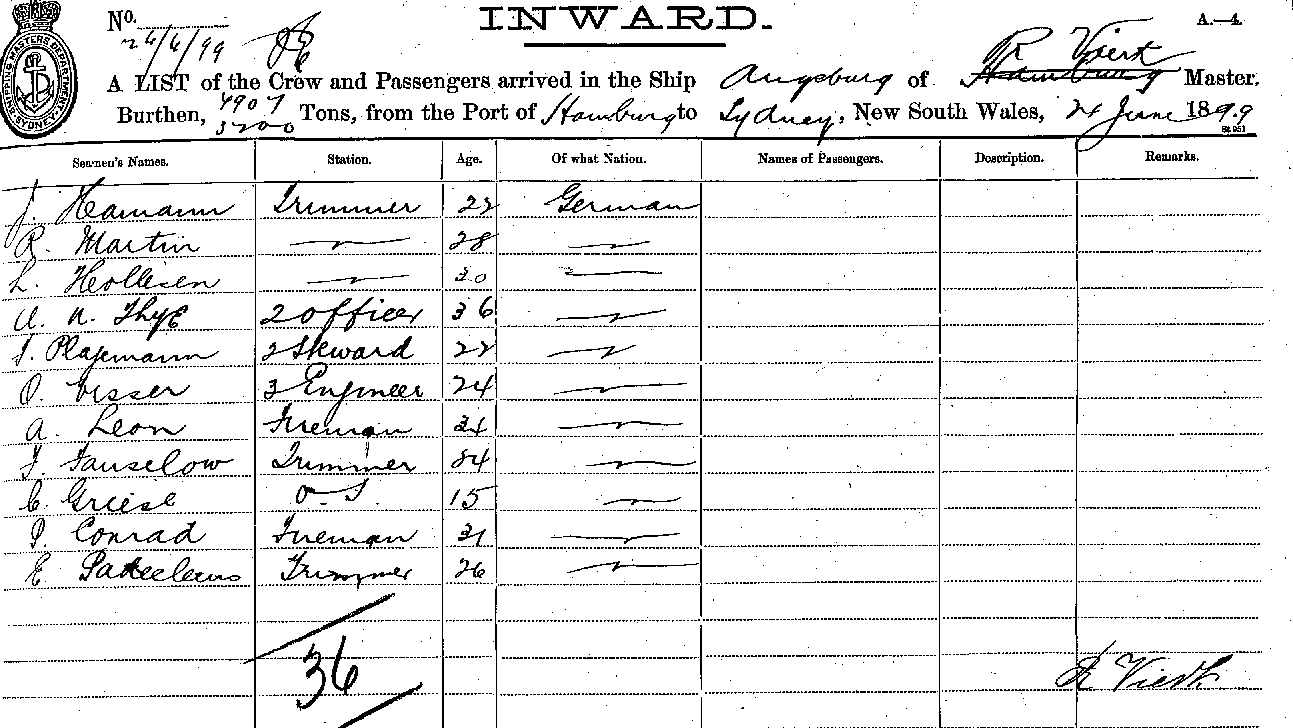 INWARD.
A.—4.
No.
26/6/99
R Vierk
A LIST of the Crew and Passengers arrived in the Ship Augsburg of Hamburg Master,
Burthen, 4907 Tons, from the Port of Hamburg to Sydney, New South Wales, 24 June 1899
3200
SHIPPING MASTERS DEPARTMENT SYDNEY
Seamen's Names. Station. Age. Of what Nation. Names of Passengers. Description. Remarks.
J. Hamann Trimmer 22 German
R. Martin 28
L. 30
A. N. Thye 2 officer 36
Plagemann 2 Steward 22
O. Visser 3 Engineer 24
A. Leon Fireman
F. Fanselow Trimmer
C. Griese O.S. 15
P. Conrad Fireman 31
E Trimmer 26
36
R Vierk